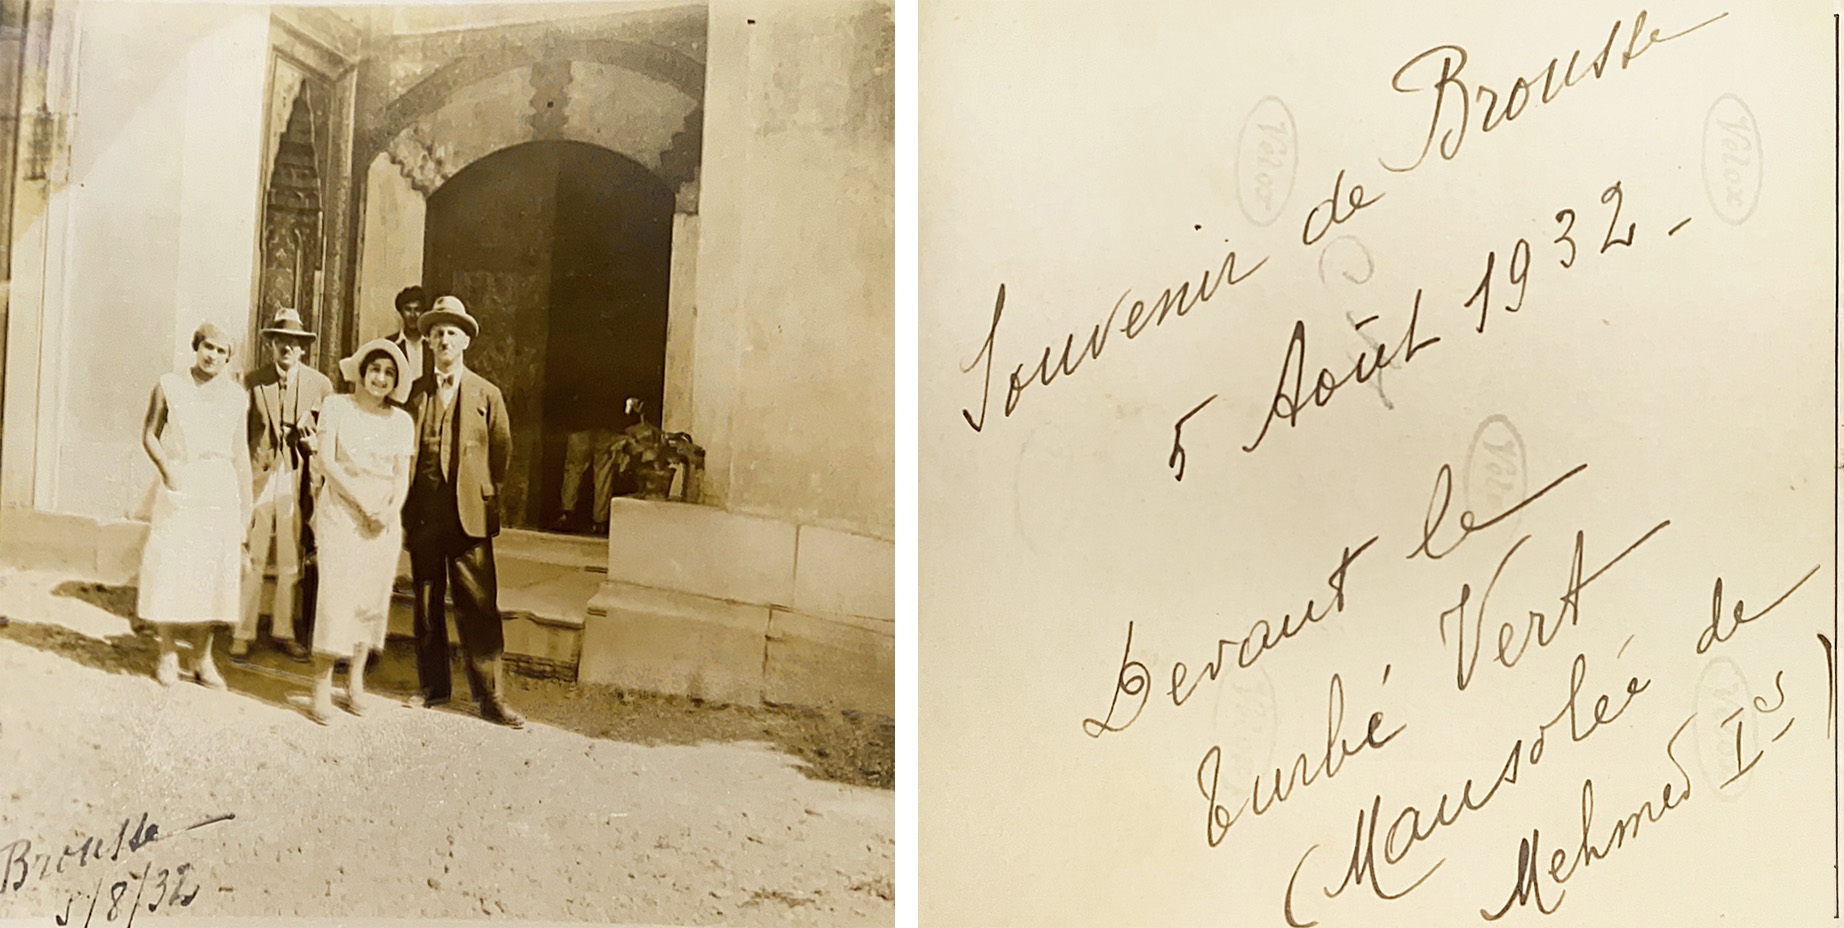 Brousse
5/8/32 -
Souvenir de Brousse
5 Août 1932 -
Devant le
Turbé Vert
(Mausolée de
Mehmed Ier)
Velox
Velox
Velox
Velox
Velox